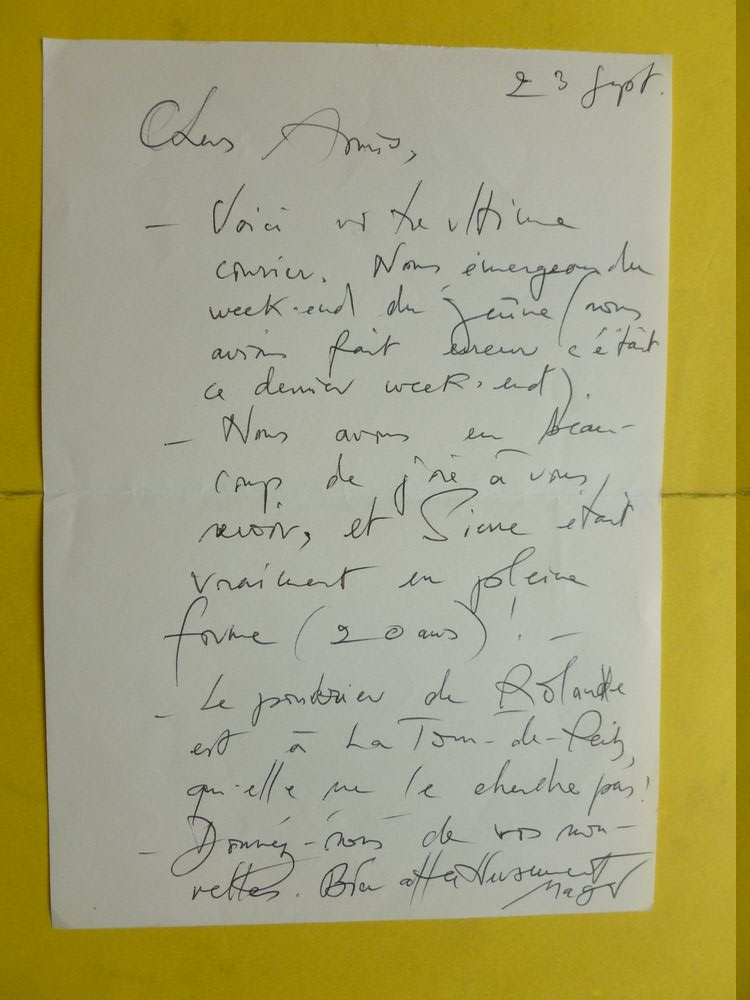 23 Sept.
Chers Amis,
– Voici votre ultime
courier. Nous émergeons du
week-end du Jeûne (nous
avions fait erreur c'était
ce dernier week-end).
– Nous avons eu beau-
coup de joie à vous
revoir, et Pierre était
vraiment en pleine
forme (20 ans)! –
– Le poudrier de Rolande
est à La Tour-de-Peilz,
qu'elle ne le cherche pas!
– Donnez-nous de vos nou-
velles. Bien affectueusement